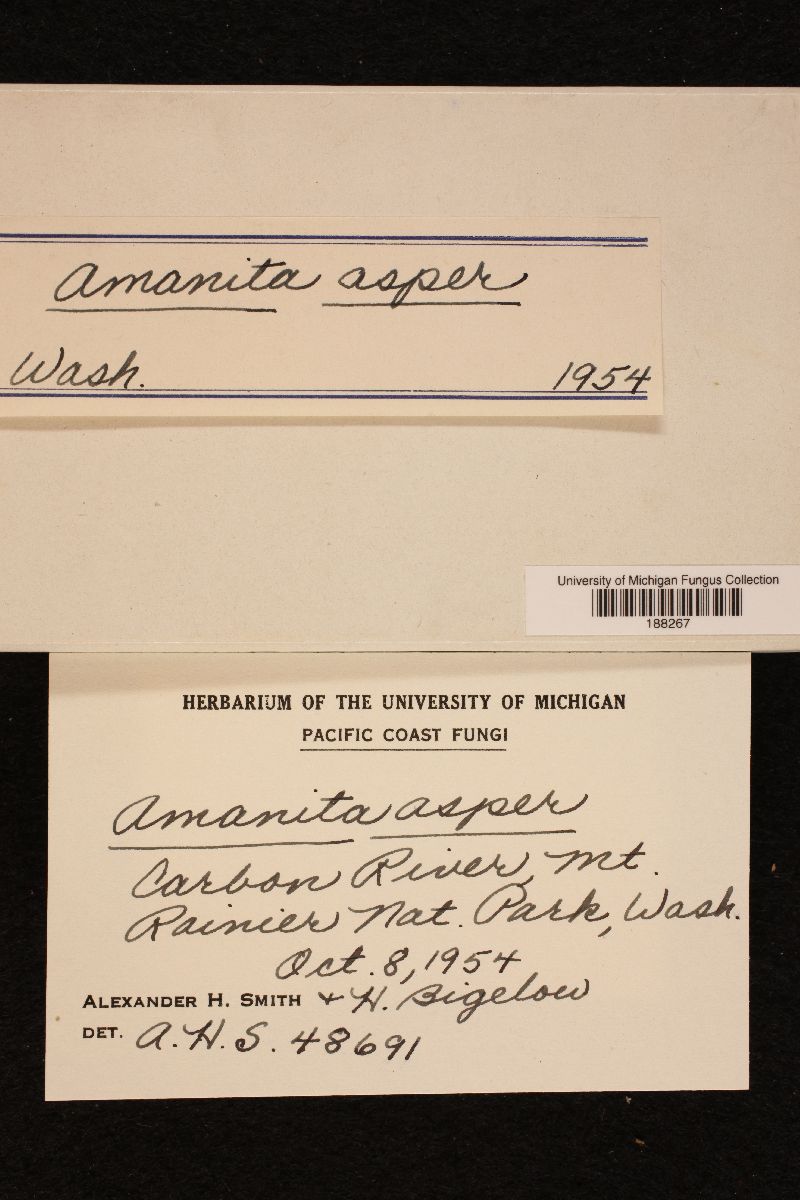 Amanita asper
Wash. 1954
University of Michigan Fungus Collection
188267
HERBARIUM OF THE UNIVERSITY OF MICHIGAN
PACIFIC COAST FUNGI
Amanita asper
Carbon River, Mt.
Rainier Nat. Park, Wash.
Oct. 8, 1954
ALEXANDER H. SMITH + H. Bigelow
DET. A. H. S. 48691